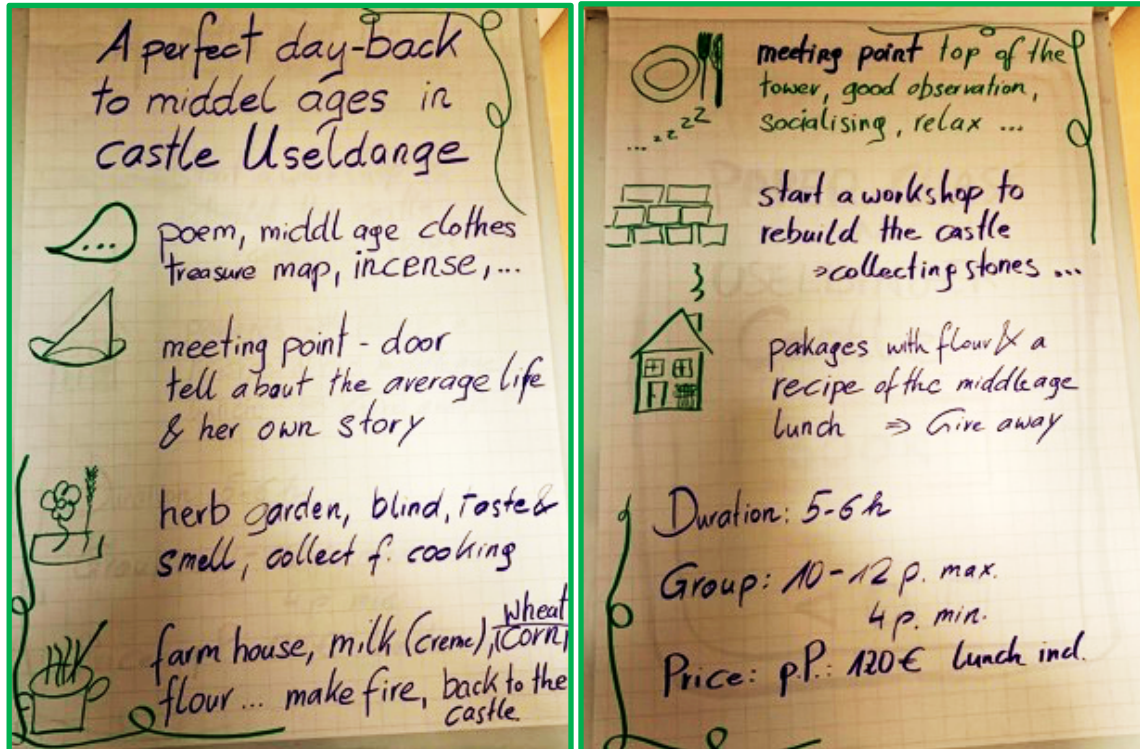 A perfect day-back
to middel ages in
castle Useldange
poem, middl age clothes
treasure map, incense, ...
meeting point - door
tell about the average life
& her own story
herb garden, blind, taste &
smell, collect f. cooking
farm house, milk (creme), wheat (corn)
flour ... make fire, back to the
castle.
meeting point top of the
tower, good observation,
socialising, relax ...
... z z z Z
start a workshop to
rebuild the castle
⇒ collecting stones ...
pakages with flour & a
recipe of the middleage
lunch ⇒ Give away
Duration: 5-6 h
Group: 10-12 p. max.
4 p. min.
Price: p.P.: 120 € lunch incl.